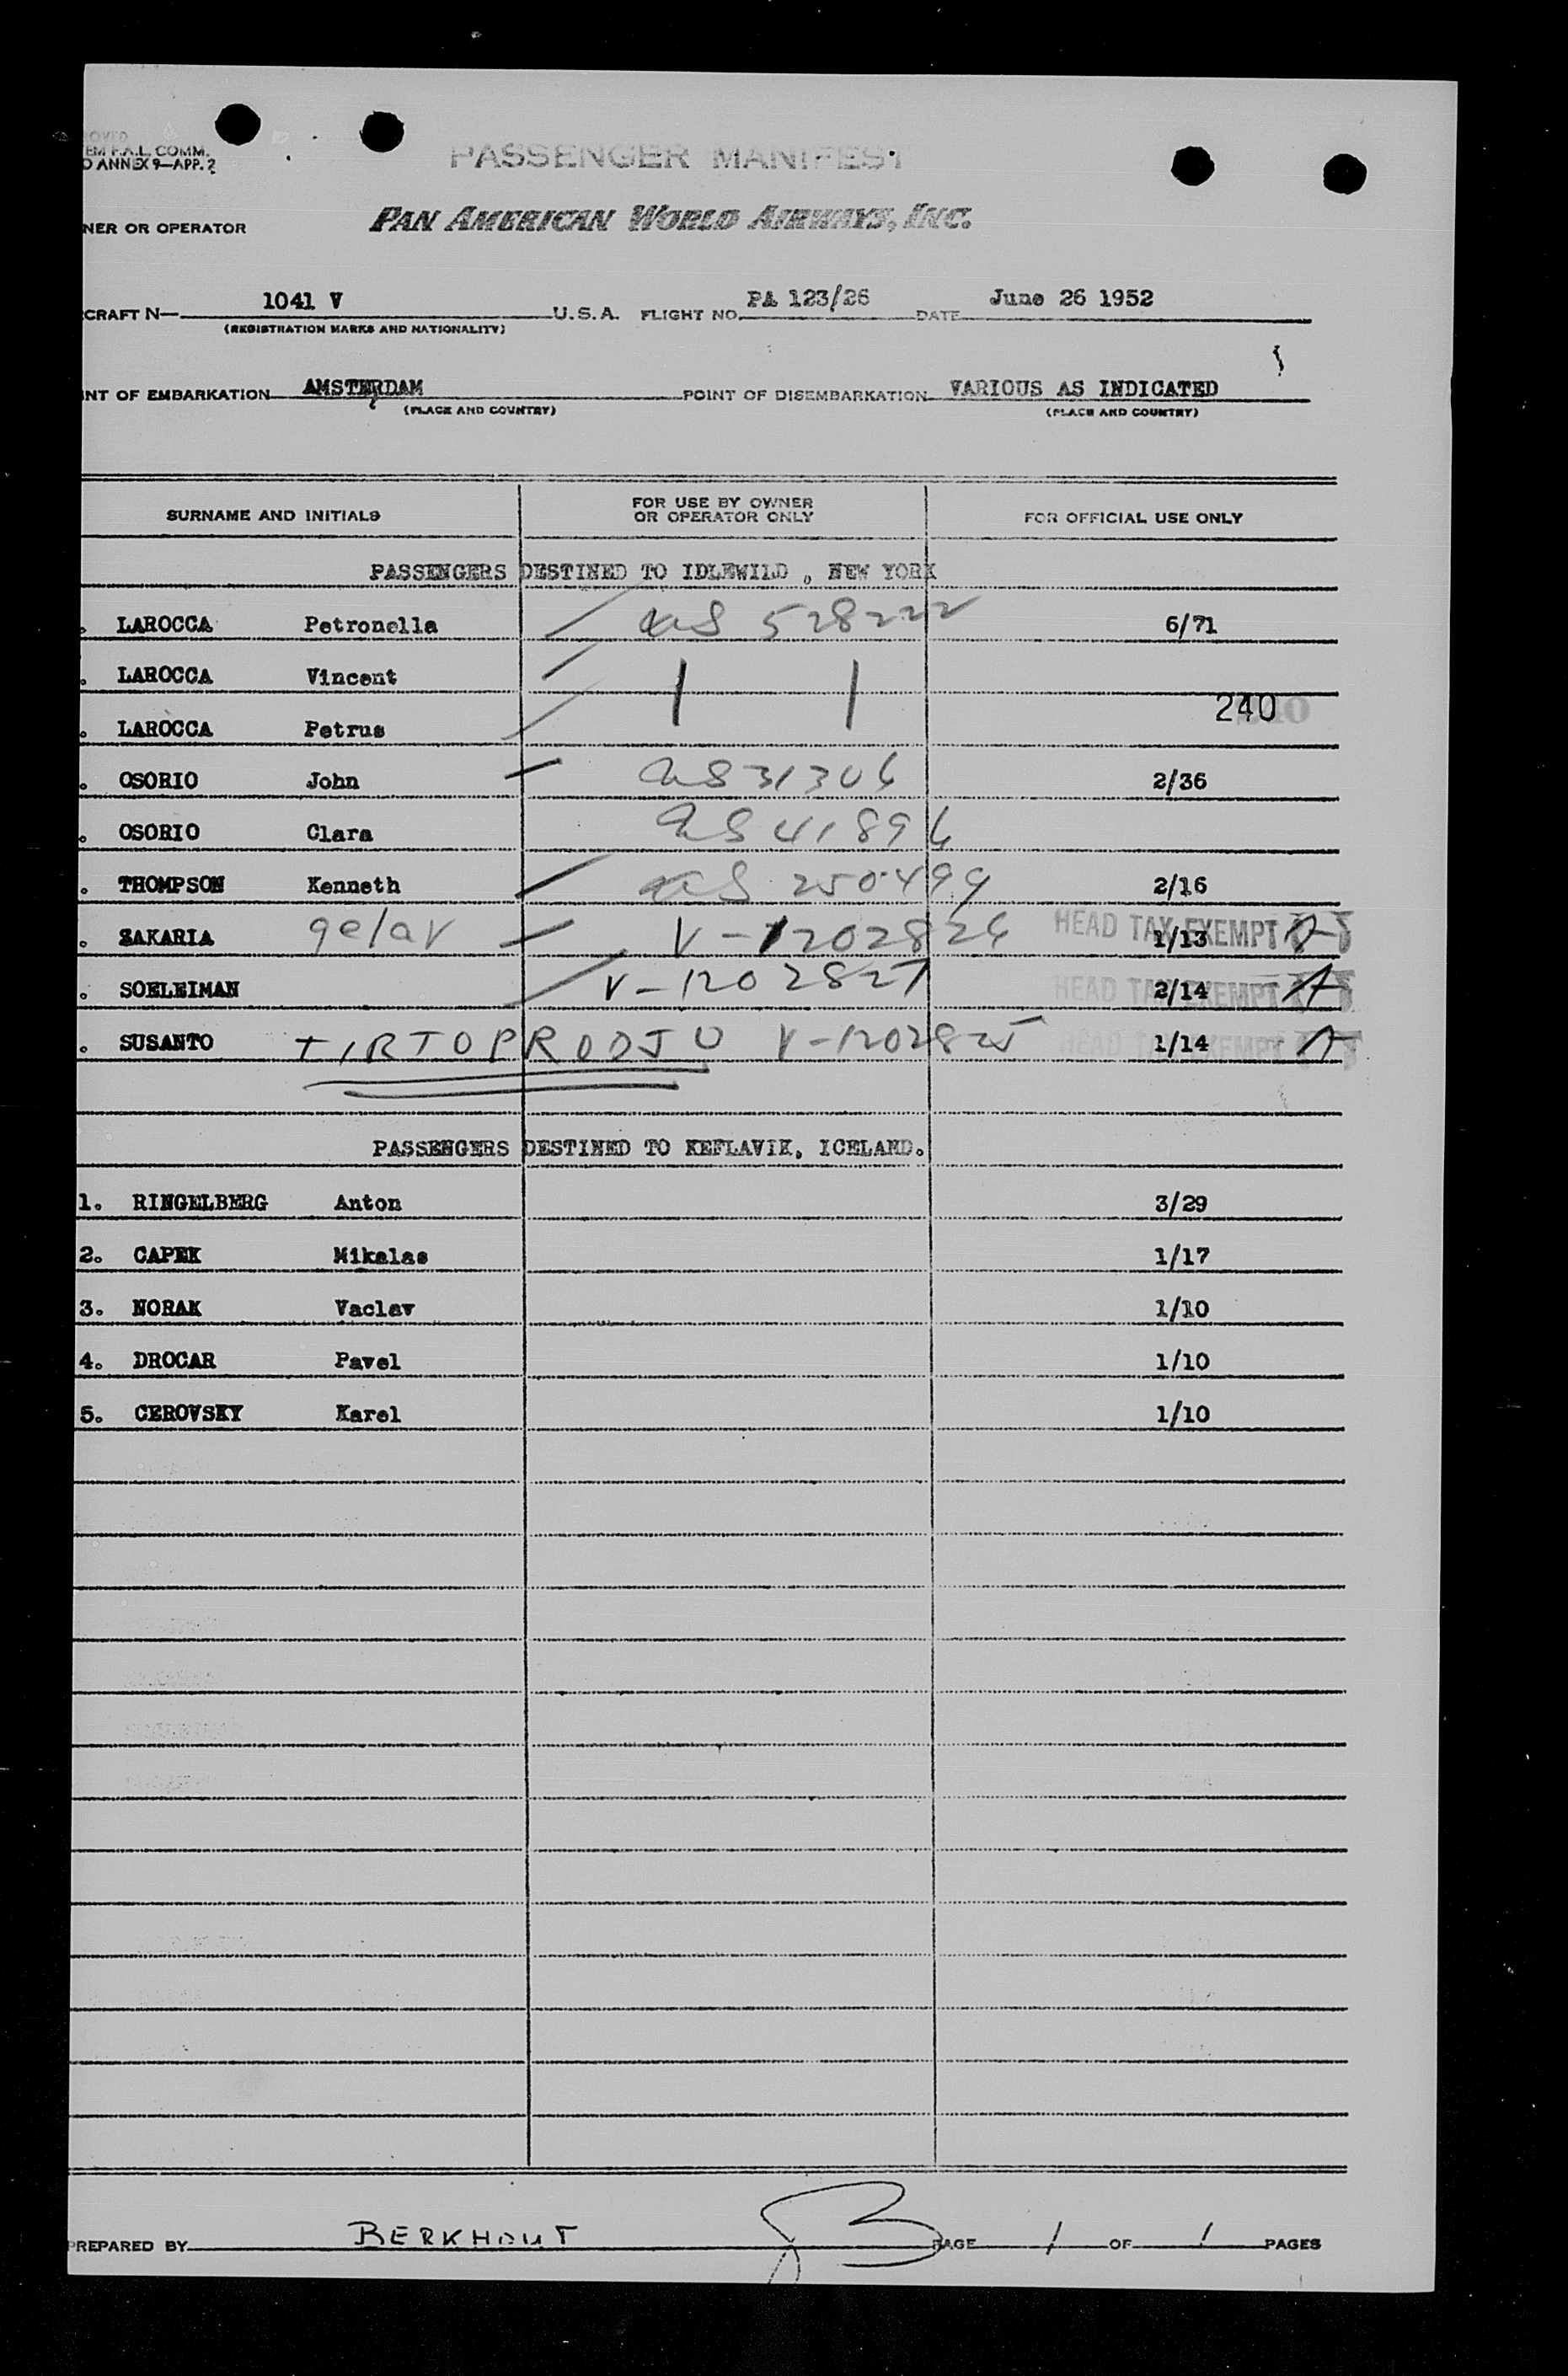 OVED
EM F.A.L. COMM.
O ANNEX 9—APP. 2
PASSENGER MANIFEST
NER OR OPERATOR PAN AMERICAN WORLD AIRWAYS, INC.
CRAFT N— 1041 V U.S.A. FLIGHT NO. PA 123/26 DATE June 26 1952
(REGISTRATION MARKS AND NATIONALITY)
INT OF EMBARKATION AMSTERDAM POINT OF DISEMBARKATION VARIOUS AS INDICATED
(PLACE AND COUNTRY) (PLACE AND COUNTRY)
SURNAME AND INITIALS FOR USE BY OWNER OR OPERATOR ONLY FOR OFFICIAL USE ONLY
PASSENGERS DESTINED TO IDLEWILD , NEW YORK
. LAROCCA Petronella US 528222 6/71
. LAROCCA Vincent
240
. LAROCCA Petrus
. OSORIO John US 31306 2/36
. OSORIO Clara US 41896
. THOMPSON Kenneth US 250499 2/16
. SAKARIA gelar V-1202826 HEAD TAX EXEMPT 1/13
. SOELEIMAN V-1202827 HEAD TAX EXEMPT 2/14
. SUSANTO TIRTOPRODJO V-1202825 HEAD TAX EXEMPT 1/14
PASSENGERS DESTINED TO KEFLAVIK, ICELAND.
1. RINGELBERG Anton 3/29
2. CAPEK Mikalas 1/17
3. NORAK Vaclav 1/10
4. DROCAR Pavel 1/10
5. CEROVSKY Karel 1/10
PREPARED BY BERKHOUT PAGE 1 OF 1 PAGES